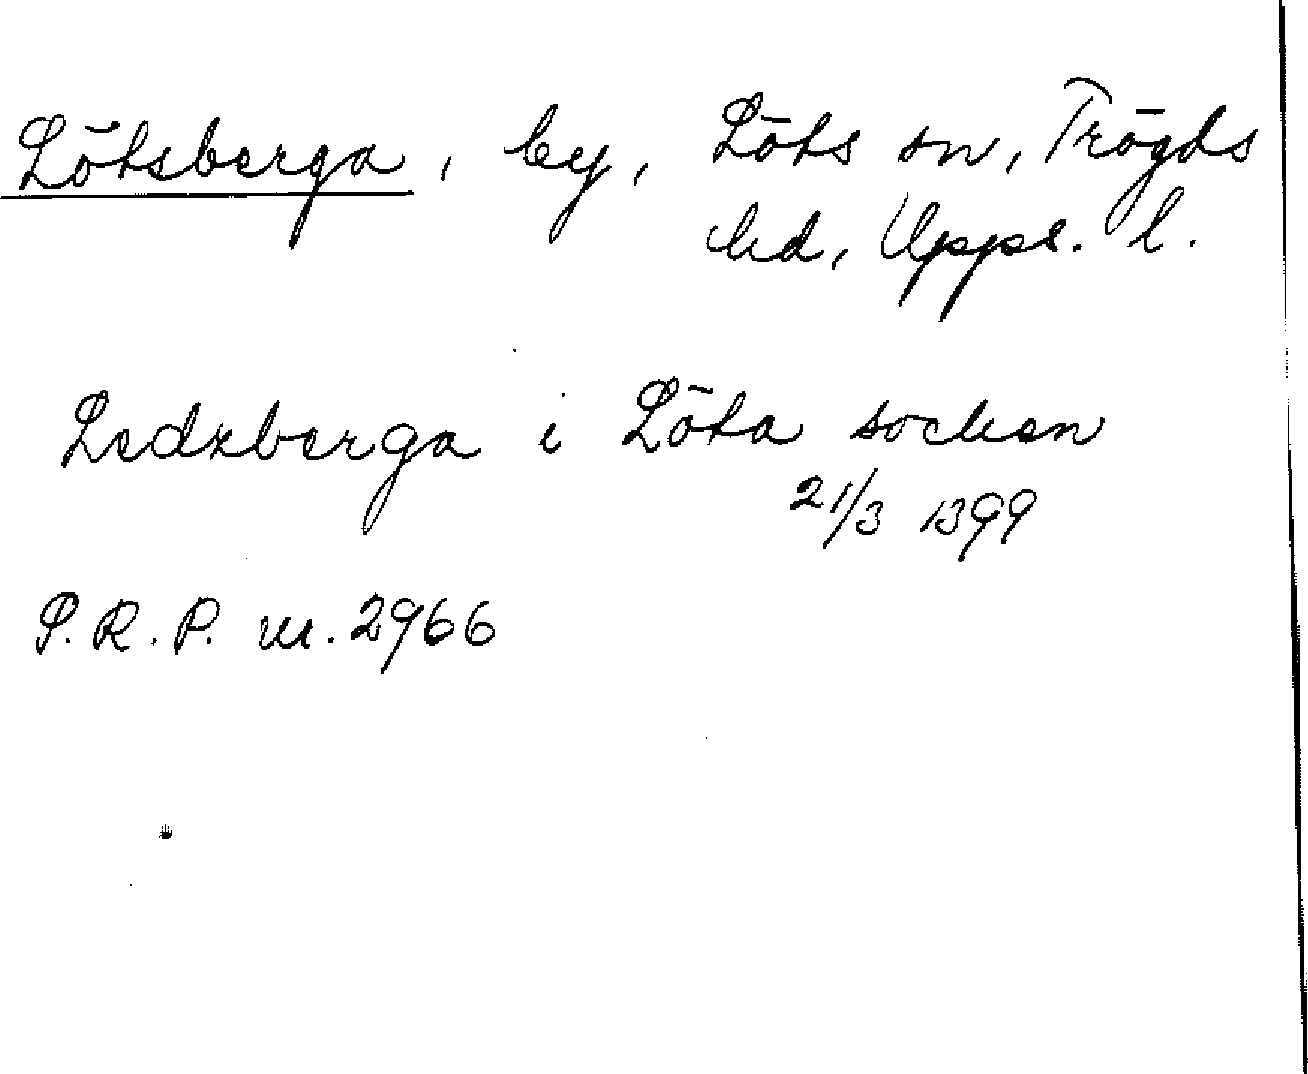 Lötsberga, by, Löts sn, Trögds
hd, Upps. l.
Ledzberga i Löta socken
21/3 1399
S.R.P. nr. 2966